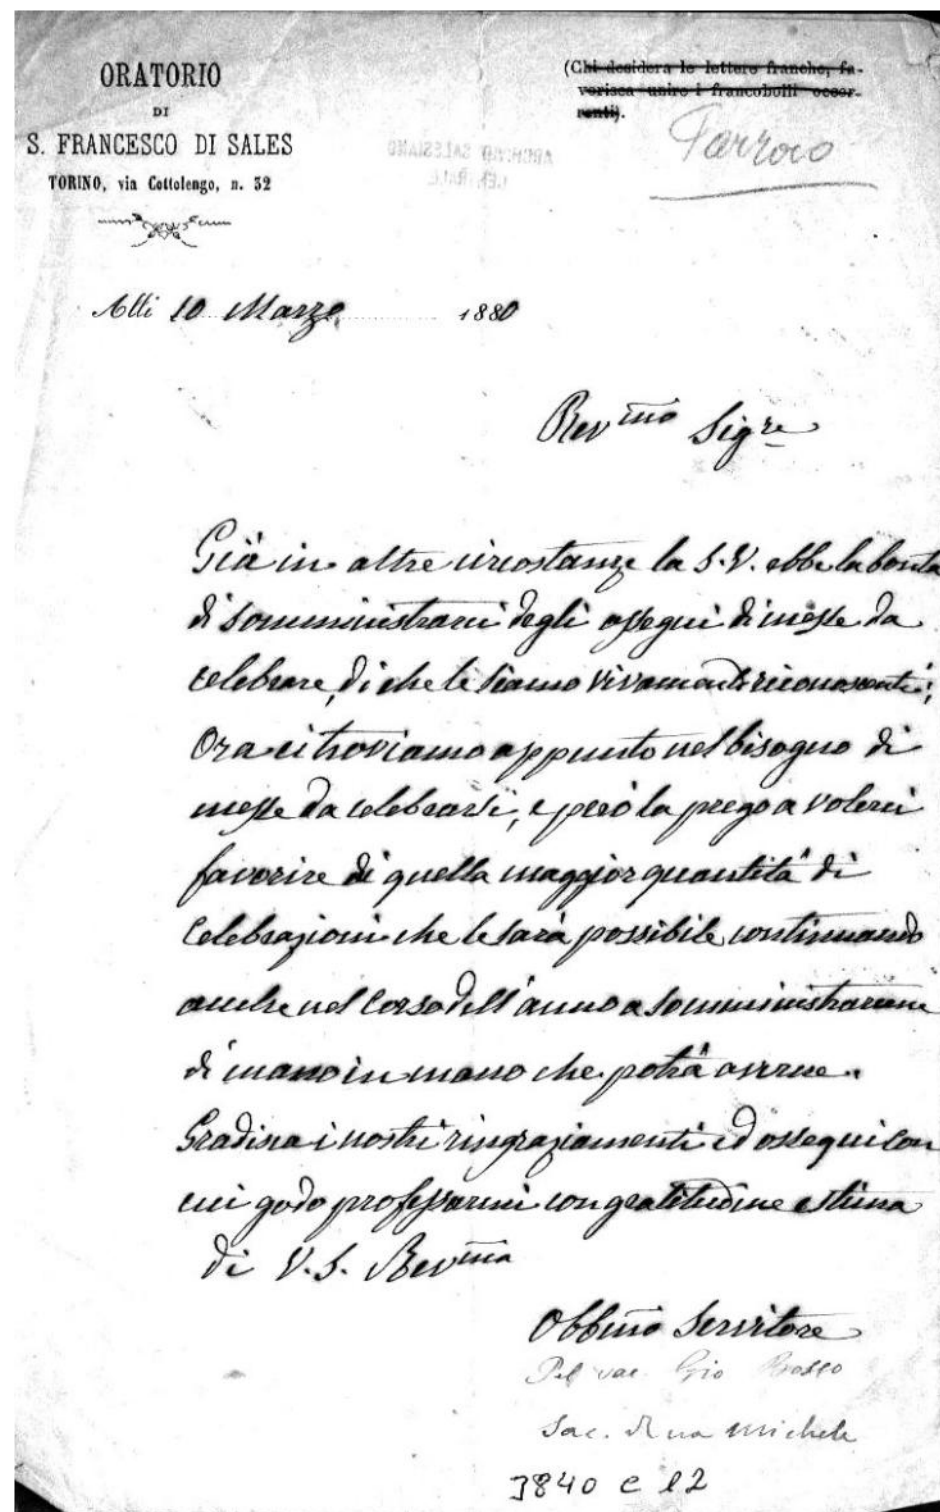 ORATORIO
DI
S. FRANCESCO DI SALES
TORINO, via Cottolengo, n. 32
(Chi desidera le lettere franche, fa-
vorisca unire i francobolli occor-
renti).
Parroco
ARCHIVIO SALESIANO
CENTRALE
Alli 10 Marzo 1880
Rev.mo Sig.re
Già in altre circostanze la S.V. ebbe la bontà
di somministrarci degli ossequi di messe da
celebrare, di che le siamo vivamente riconoscenti;
Ora ci troviamo appunto nel bisogno di
messe da celebrarsi, e però la prego a volerci
favorire di quella maggior quantità di
Celebrazioni che le sarà possibile continuando
anche nel corso dell'anno a somministrarcene
di mano in mano che potrà averne.
Gradisca i nostri ringraziamenti ed ossequi con
cui godo professarmi con gratitudine e stima
di V.S. Rev.ma
Obbmo Servitore
Pel sac. Gio Bosco
Sac. Rua Michele
3840 C 12